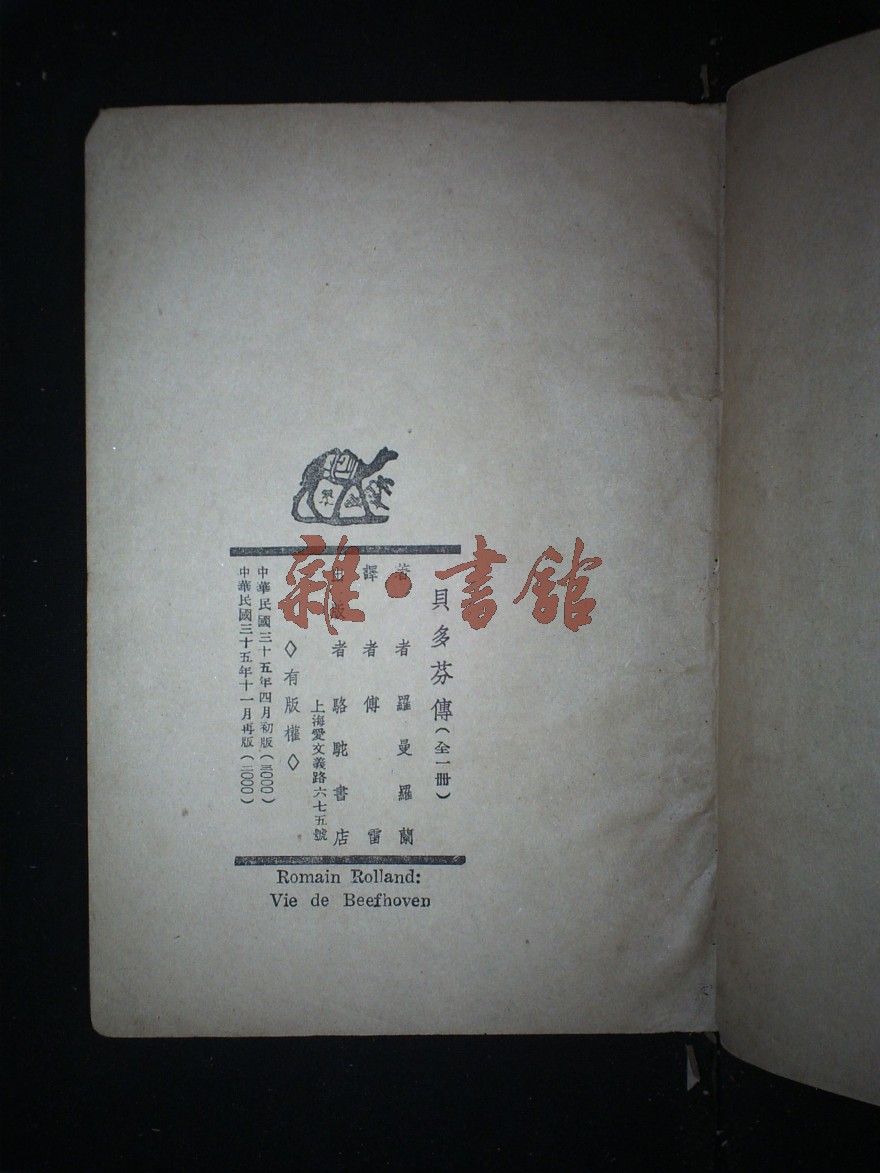 貝多芬傳(全一冊)
著者 羅曼羅蘭
譯者 傅雷
出版者 駱駝書店
上海愛文義路六七五號
◇有版權◇
中華民國三十五年四月初版(三〇〇〇)
中華民國三十五年十一月再版(二〇〇〇)
Romain Rolland:
Vie de Beefhoven
雜·書館